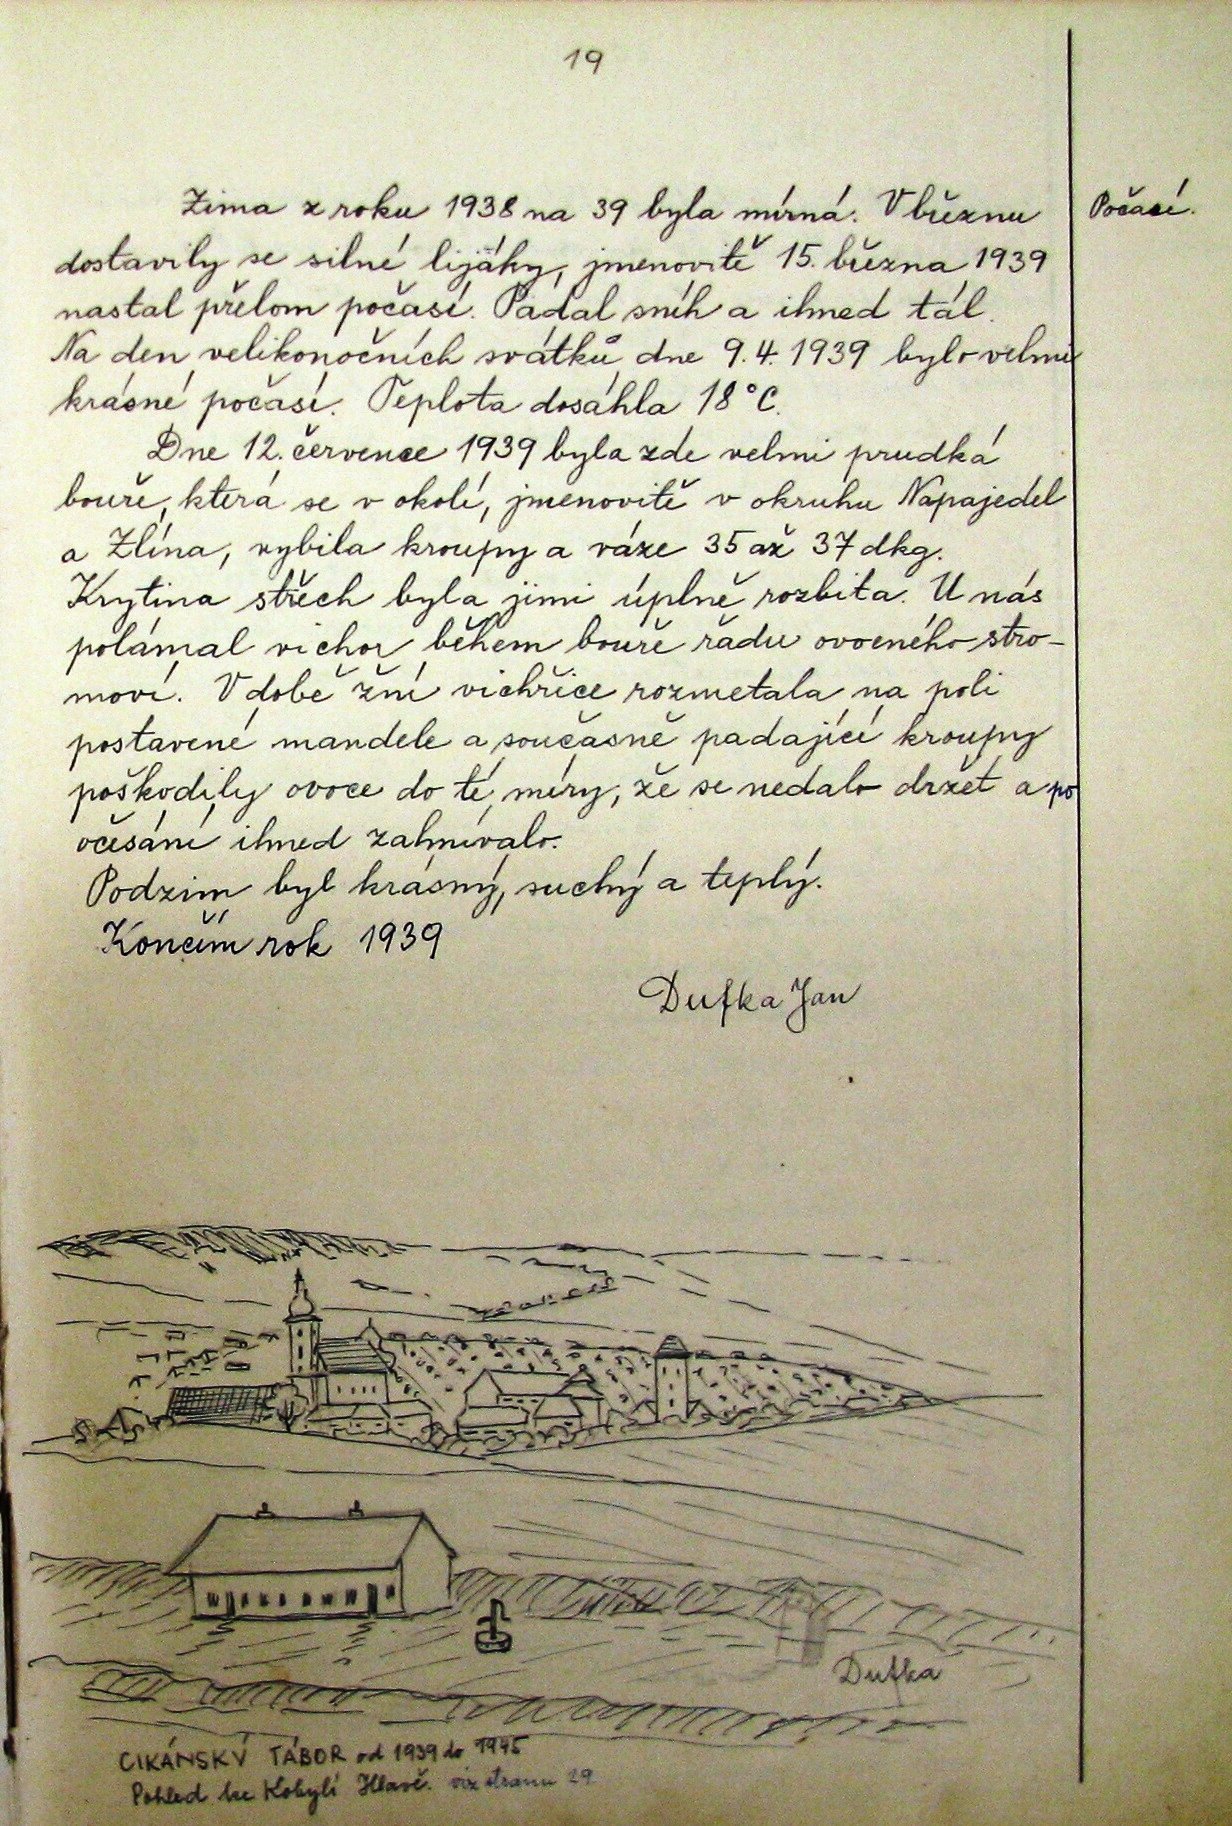 19
Zima z roku 1938 na 39 byla mírná. V březnu
Počasí.
dostavily se silné lijáky, jmenovitě 15. března 1939
nastal přelom počasí. Padal sníh a ihned tál.
Na den velikonočních svátků, dne 9.4. 1939 bylo velmi
krásné počasí. Teplota dosáhla 18°C.
Dne 12. července 1939 byla zde velmi prudká
bouře, která se v okolí, jmenovitě v okruhu Napajedel
a Zlína, vybila kroupy a váze 35 až 37 dkg.
Krytina střech byla jimi úplně rozbita. U nás
polámal vichor během bouře řadu ovocného stro-
moví. V době žní vichřice rozmetala na poli
postavené mandele a současně padající kroupy
poškodily ovoce do té míry, že se nedalo držet a po
očesání ihned zahnívalo.
Podzim byl krásný, suchý a teplý.
Končím rok 1939
Dufka Jan
Dufka
CIKÁNSKÝ TÁBOR od 1939 do 1945
Pohled ke Kobylí Hlavě. viz stranu 29